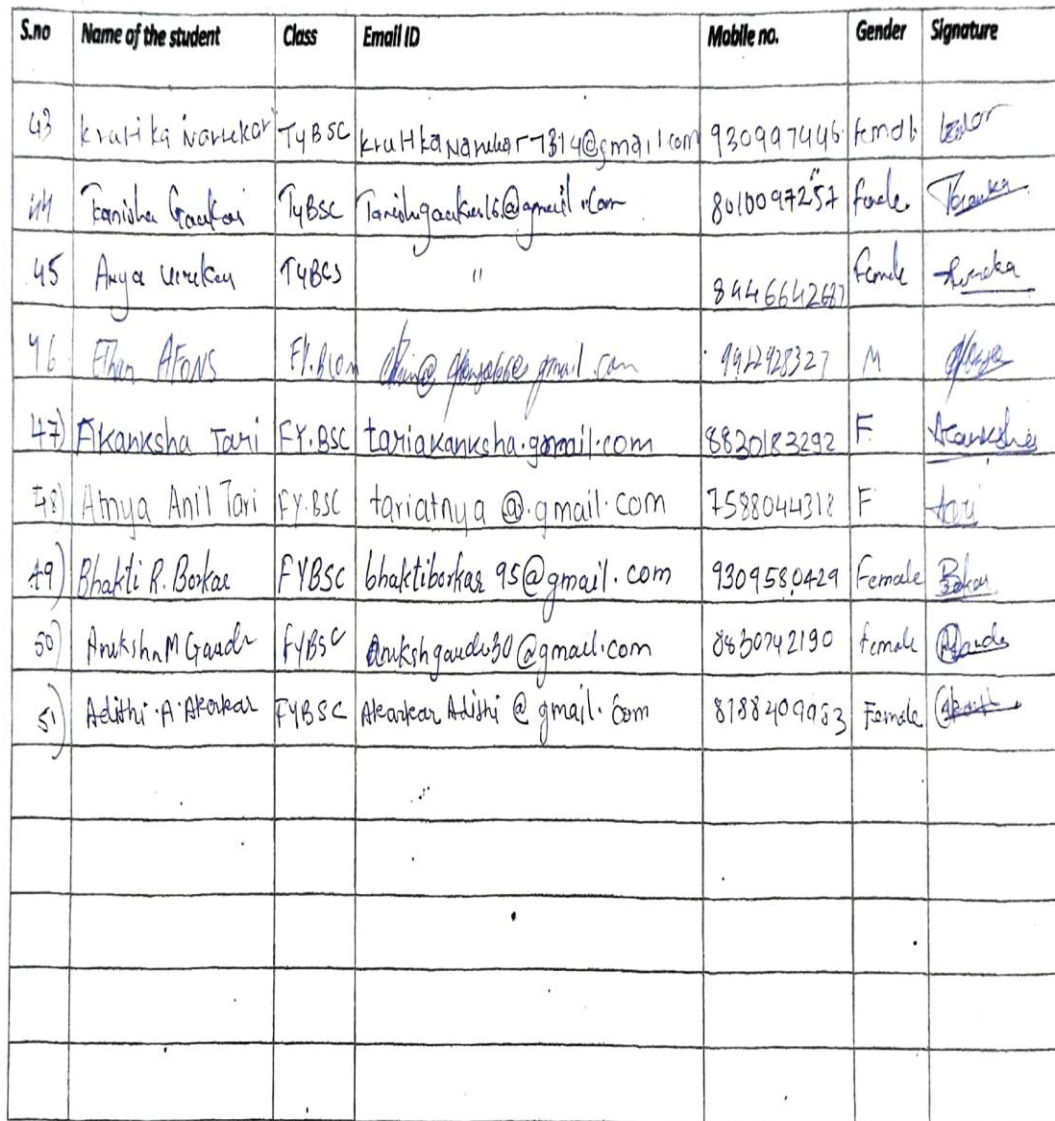 S.no Name of the student Class Email ID Mobile no. Gender Signature
43 krutika Narvekar TYBSC 930997446 female
44 Tanisha Gaukar TyBSC 8010097257 female
45 Arya TYBCS " 8446642687 Female
46 Ethan AFONS FY.BCom gmail.com 9922928327 M
47) Akanksha Tari FY.BSC tariakanksha.gmail.com 8830183292 F Akanksha
48) Atnya Anil Tari FY.BSC tariatnya @.gmail.com 7588044318 F tari
49) Bhakti R. Borkar FYBSC bhaktiborkar 95@gmail.com 9309580429 Female Borkar
50) Anuksha M Gaude FYBSC Anukshgaude30@gmail.com 8830742190 female
51) Adithi.A.Akarkar FYBSC Akarkar Adithi @ gmail.com 8188409983 Female